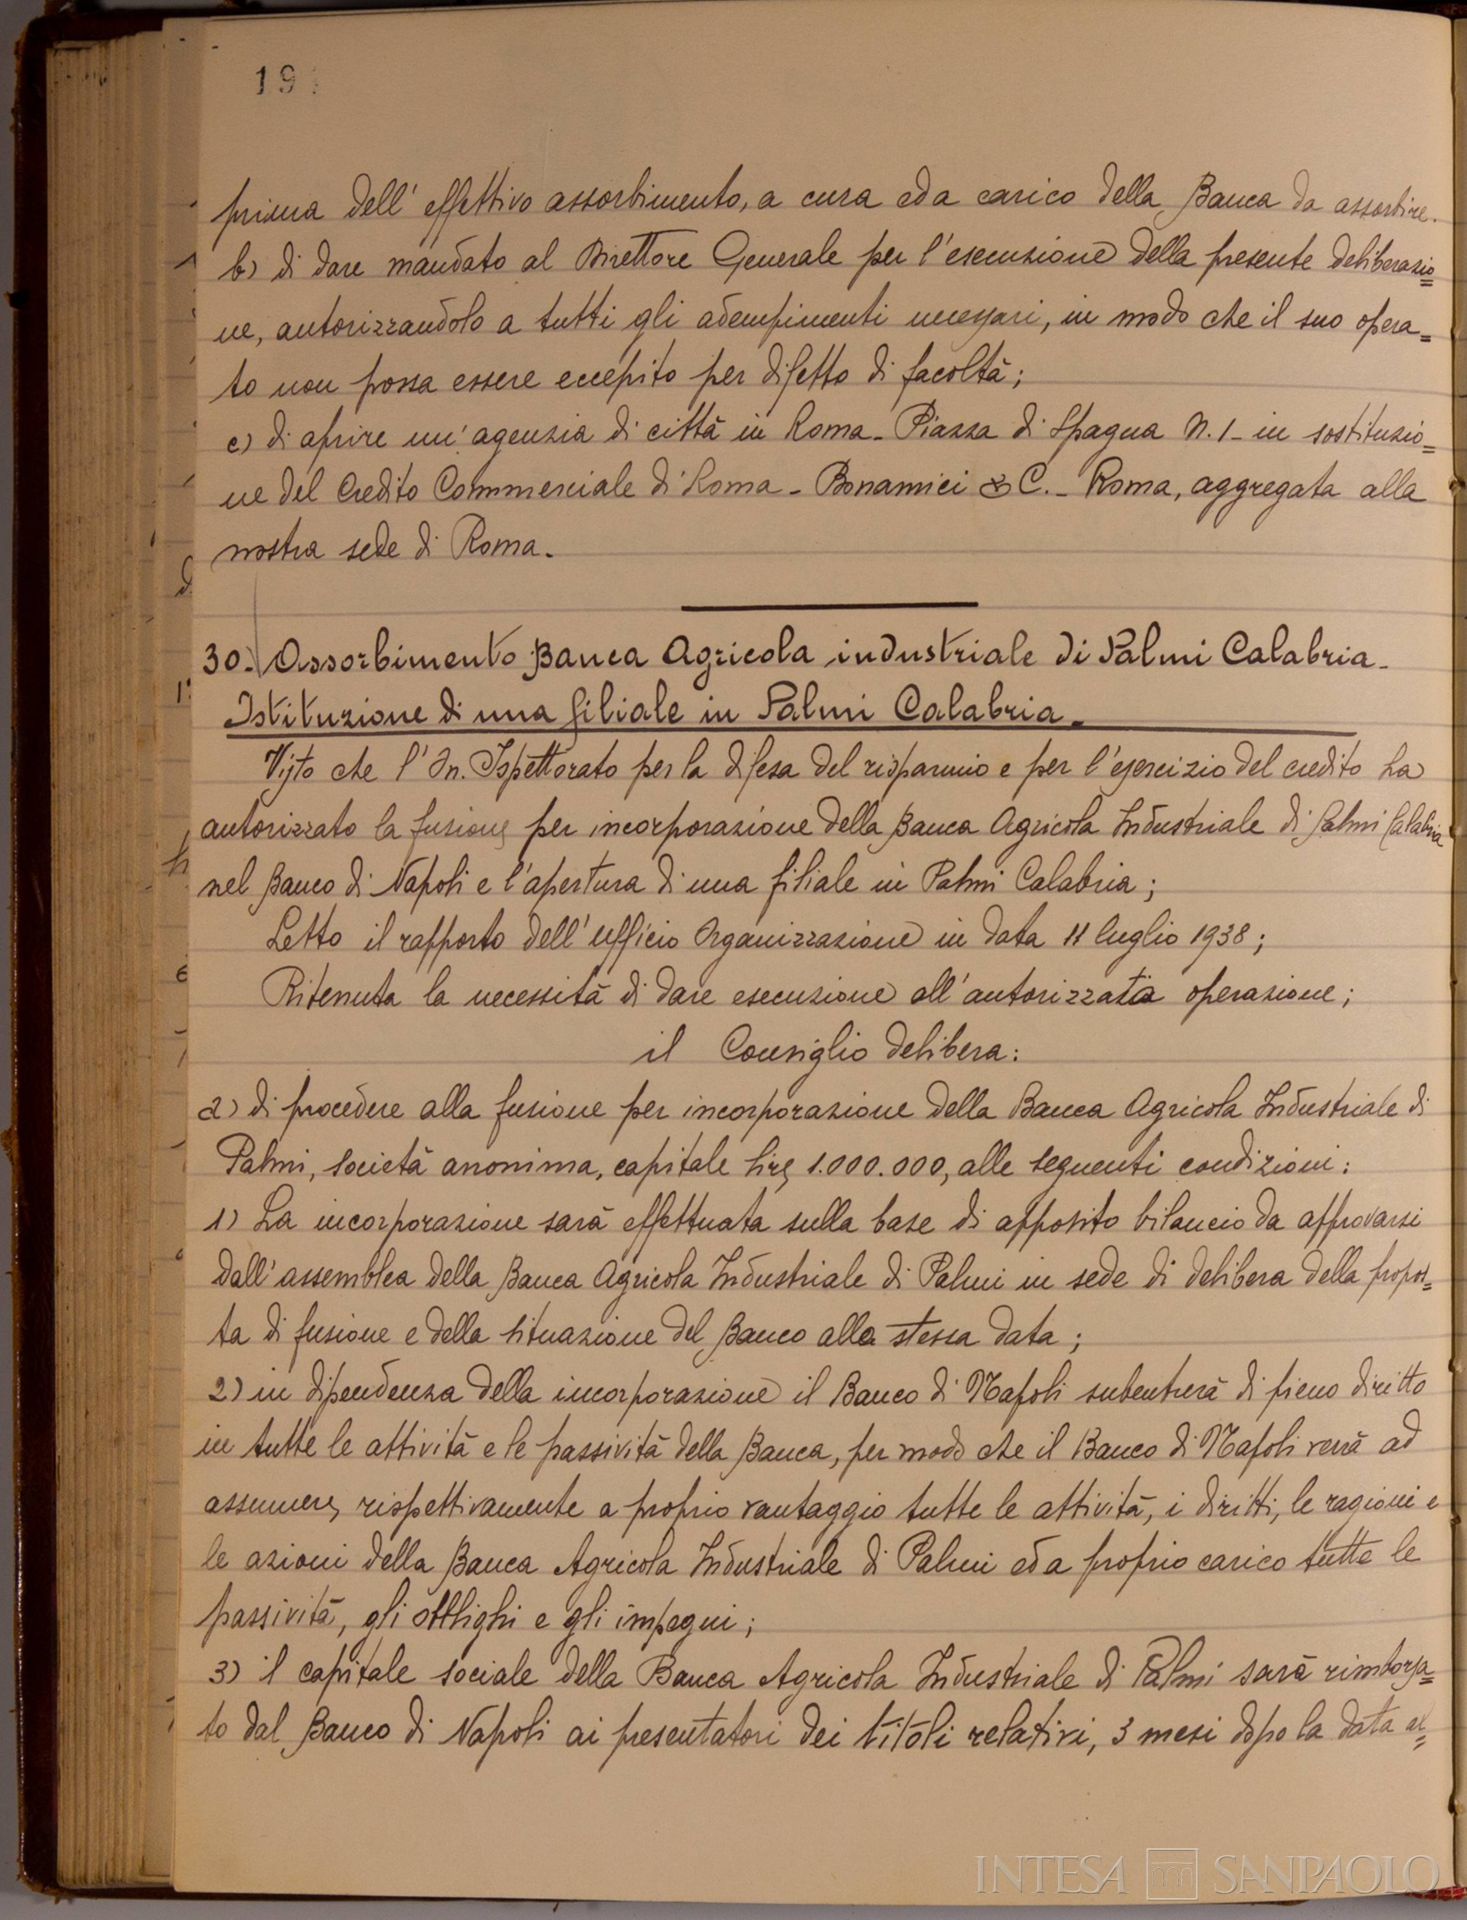 19
prima dell'effettivo assorbimento, a cura ed a carico della Banca da assorbire.
b) di dare mandato al Direttore Generale per l'esecuzione della presente deliberazio=
ne, autorizzandolo a tutti gli adempimenti necessari, in modo che il suo opera=
to non possa essere eccepito per difetto di facoltà;
c) di aprire un'agenzia di città in Roma - Piazza di Spagna N. 1 - in sostituzio=
ne del Credito Commerciale di Roma - Bonamici & C. - Roma, aggregata alla
nostra sede di Roma.
30. Assorbimento Banca Agricola industriale di Palmi Calabria -
Istituzione di una filiale in Palmi Calabria -
Visto che l'On. Ispettorato per la difesa del risparmio e per l'esercizio del credito ha
autorizzato la fusione per incorporazione della Banca Agricola Industriale di Palmi Calabria
nel Banco di Napoli e l'apertura di una filiale in Palmi Calabria;
Letto il rapporto dell'Ufficio Organizzazione in data 11 luglio 1938;
Ritenuta la necessità di dare esecuzione all'autorizzata operazione;
il Consiglio delibera:
a) di procedere alla fusione per incorporazione della Banca Agricola Industriale di
Palmi, società anonima, capitale lire 1.000.000, alle seguenti condizioni:
1) La incorporazione sarà effettuata sulla base di apposito bilancio da approvarsi
dall'assemblea della Banca Agricola Industriale di Palmi in sede di delibera della propos=
ta di fusione e della situazione del Banco alla stessa data;
2) in dipendenza della incorporazione il Banco di Napoli subentrerà di pieno diritto
in tutte le attività e le passività della Banca, per modo che il Banco di Napoli verrà ad
assumere, rispettivamente a proprio vantaggio tutte le attività, i diritti, le ragioni e
le azioni della Banca Agricola Industriale di Palmi ed a proprio carico tutte le
passività, gli obblighi e gli impegni;
3) il capitale sociale della Banca Agricola Industriale di Palmi sarà rimborsa=
to dal Banco di Napoli ai presentatori dei titoli relativi, 3 mesi dopo la data
INTESA SANPAOLO